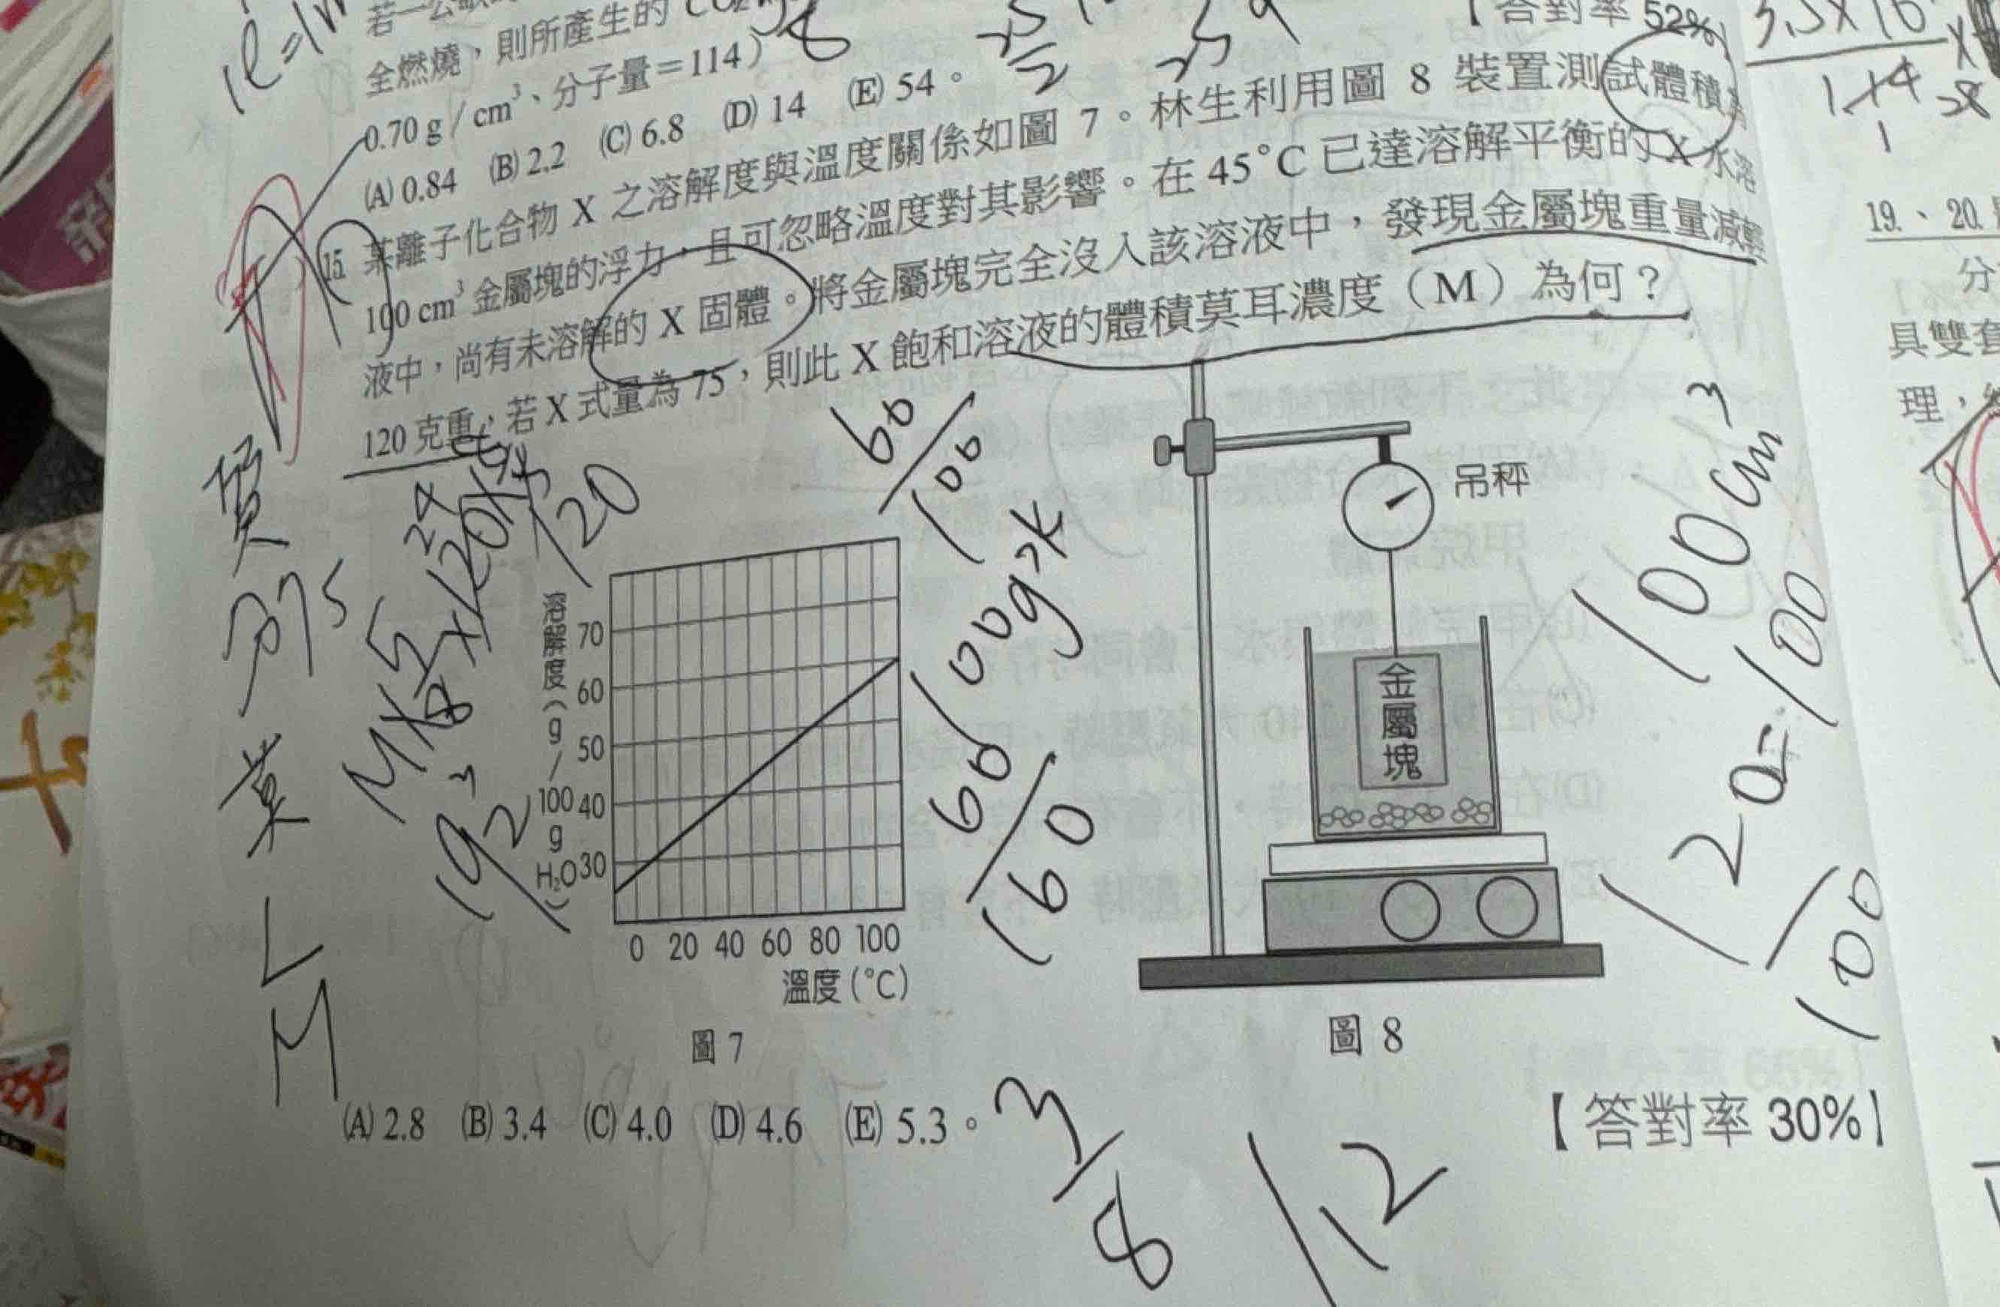 若一公
全燃燒，則所產生的 CO₂
0.70 g / cm³、分子量＝114）
(A) 0.84 (B) 2.2 (C) 6.8 (D) 14 (E) 54。
【答對率 52%】
15. 某離子化合物 X 之溶解度與溫度關係如圖 7。林生利用圖 8 裝置測試體積為
100 cm³ 金屬塊的浮力，且可忽略溫度對其影響。在 45°C 已達溶解平衡的 X 水溶
液中，尚有未溶解的 X 固體。將金屬塊完全沒入該溶液中，發現金屬塊重量減輕
120 克重，若 X 式量為 75，則此 X 飽和溶液的體積莫耳濃度（M）為何？
溶解度（g／100 g H₂O）
70
60
50
40
30
0 20 40 60 80 100
溫度（°C）
圖 7
吊秤
金屬塊
圖 8
(A) 2.8 (B) 3.4 (C) 4.0 (D) 4.6 (E) 5.3。
【答對率 30%】
質
莫
L
M
120
60
100
60/100g水
60
160
100cm³
120=100
100
3
8
12
192
19.、20.
分
具雙套
理，